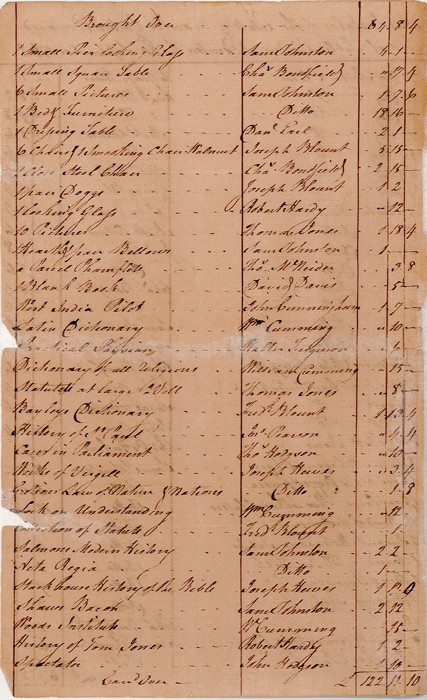 Brought Over - - 64 . 8 . 4
1 Small Pier Looking Glass - - Sam Johnston - 4 . 1 -
1 Small Square Table - - Chas Bondfield - " 17 . 4
6 Small Pictures - - Sam Johnston - 1 . 7 . 6
1 Bed & Furniture - - Ditto - 18 . 16 -
1 Dressing Table - - - 2 . 1 -
6 Chairs & 1 Smoaking Chair Walnut Joseph Blount - 5 . 15 -
1 Close Stool Chair - - Chas Bondfield - 2 . 15 -
1 pair Doggs - - Joseph Blount - 1 . 2
1 Looking Glass - - Robert Hardy - " 12 -
10 Pictures - - Thomas Jones - 1 . 18 . 4
1 Hearth & pair Bellows - - Sam Johnston - 1 -
a Parcel Phamphlets - - Thos McNider - 3 . 8
1 Blank Book - - David Davis - 5 -
West India Pilot - - John Cunningham - 1 . 7 -
Latin Dictionary - - Wm Cumming - " 10 -
Physician - - Ferguson
Dictionary of all Religions - - William Cumming - " 15 -
Statutes at large 2 Voll - - Thomas Jones - " 8 -
Bayleys Dictionary - - Fredk Blount - 1 . 13 . 4
History of - - Jno Pearson - " 4 . 4
Cases in Parliament - - Thos Hodgson - " 10 -
Works of Virgill - - Joseph Hewes - " 3 . 4
Law of Nature & Nations - - Ditto - 1 . 8
Lock on Understanding - - Wm Cumming - " 12
Collection of Statutes - - Fredk Blount - 1 -
Salmons Modern History - - Sam Johnston - 2 . 2 -
Acta Regia - - Ditto - 1 -
Stackhouse History of the Bible - Joseph Hewes - 1 . 12 . 0
Shaws Bacon - - Sam Johnston - 2 . 12
Woods Institute - - Wm Cumming - 15 -
History of Tom Jones - - Robert Hardy - 1 . 2 -
Spectator - - John Hodgson - 1 . 10 -
Card Over - - £ 122 . 13 . 10